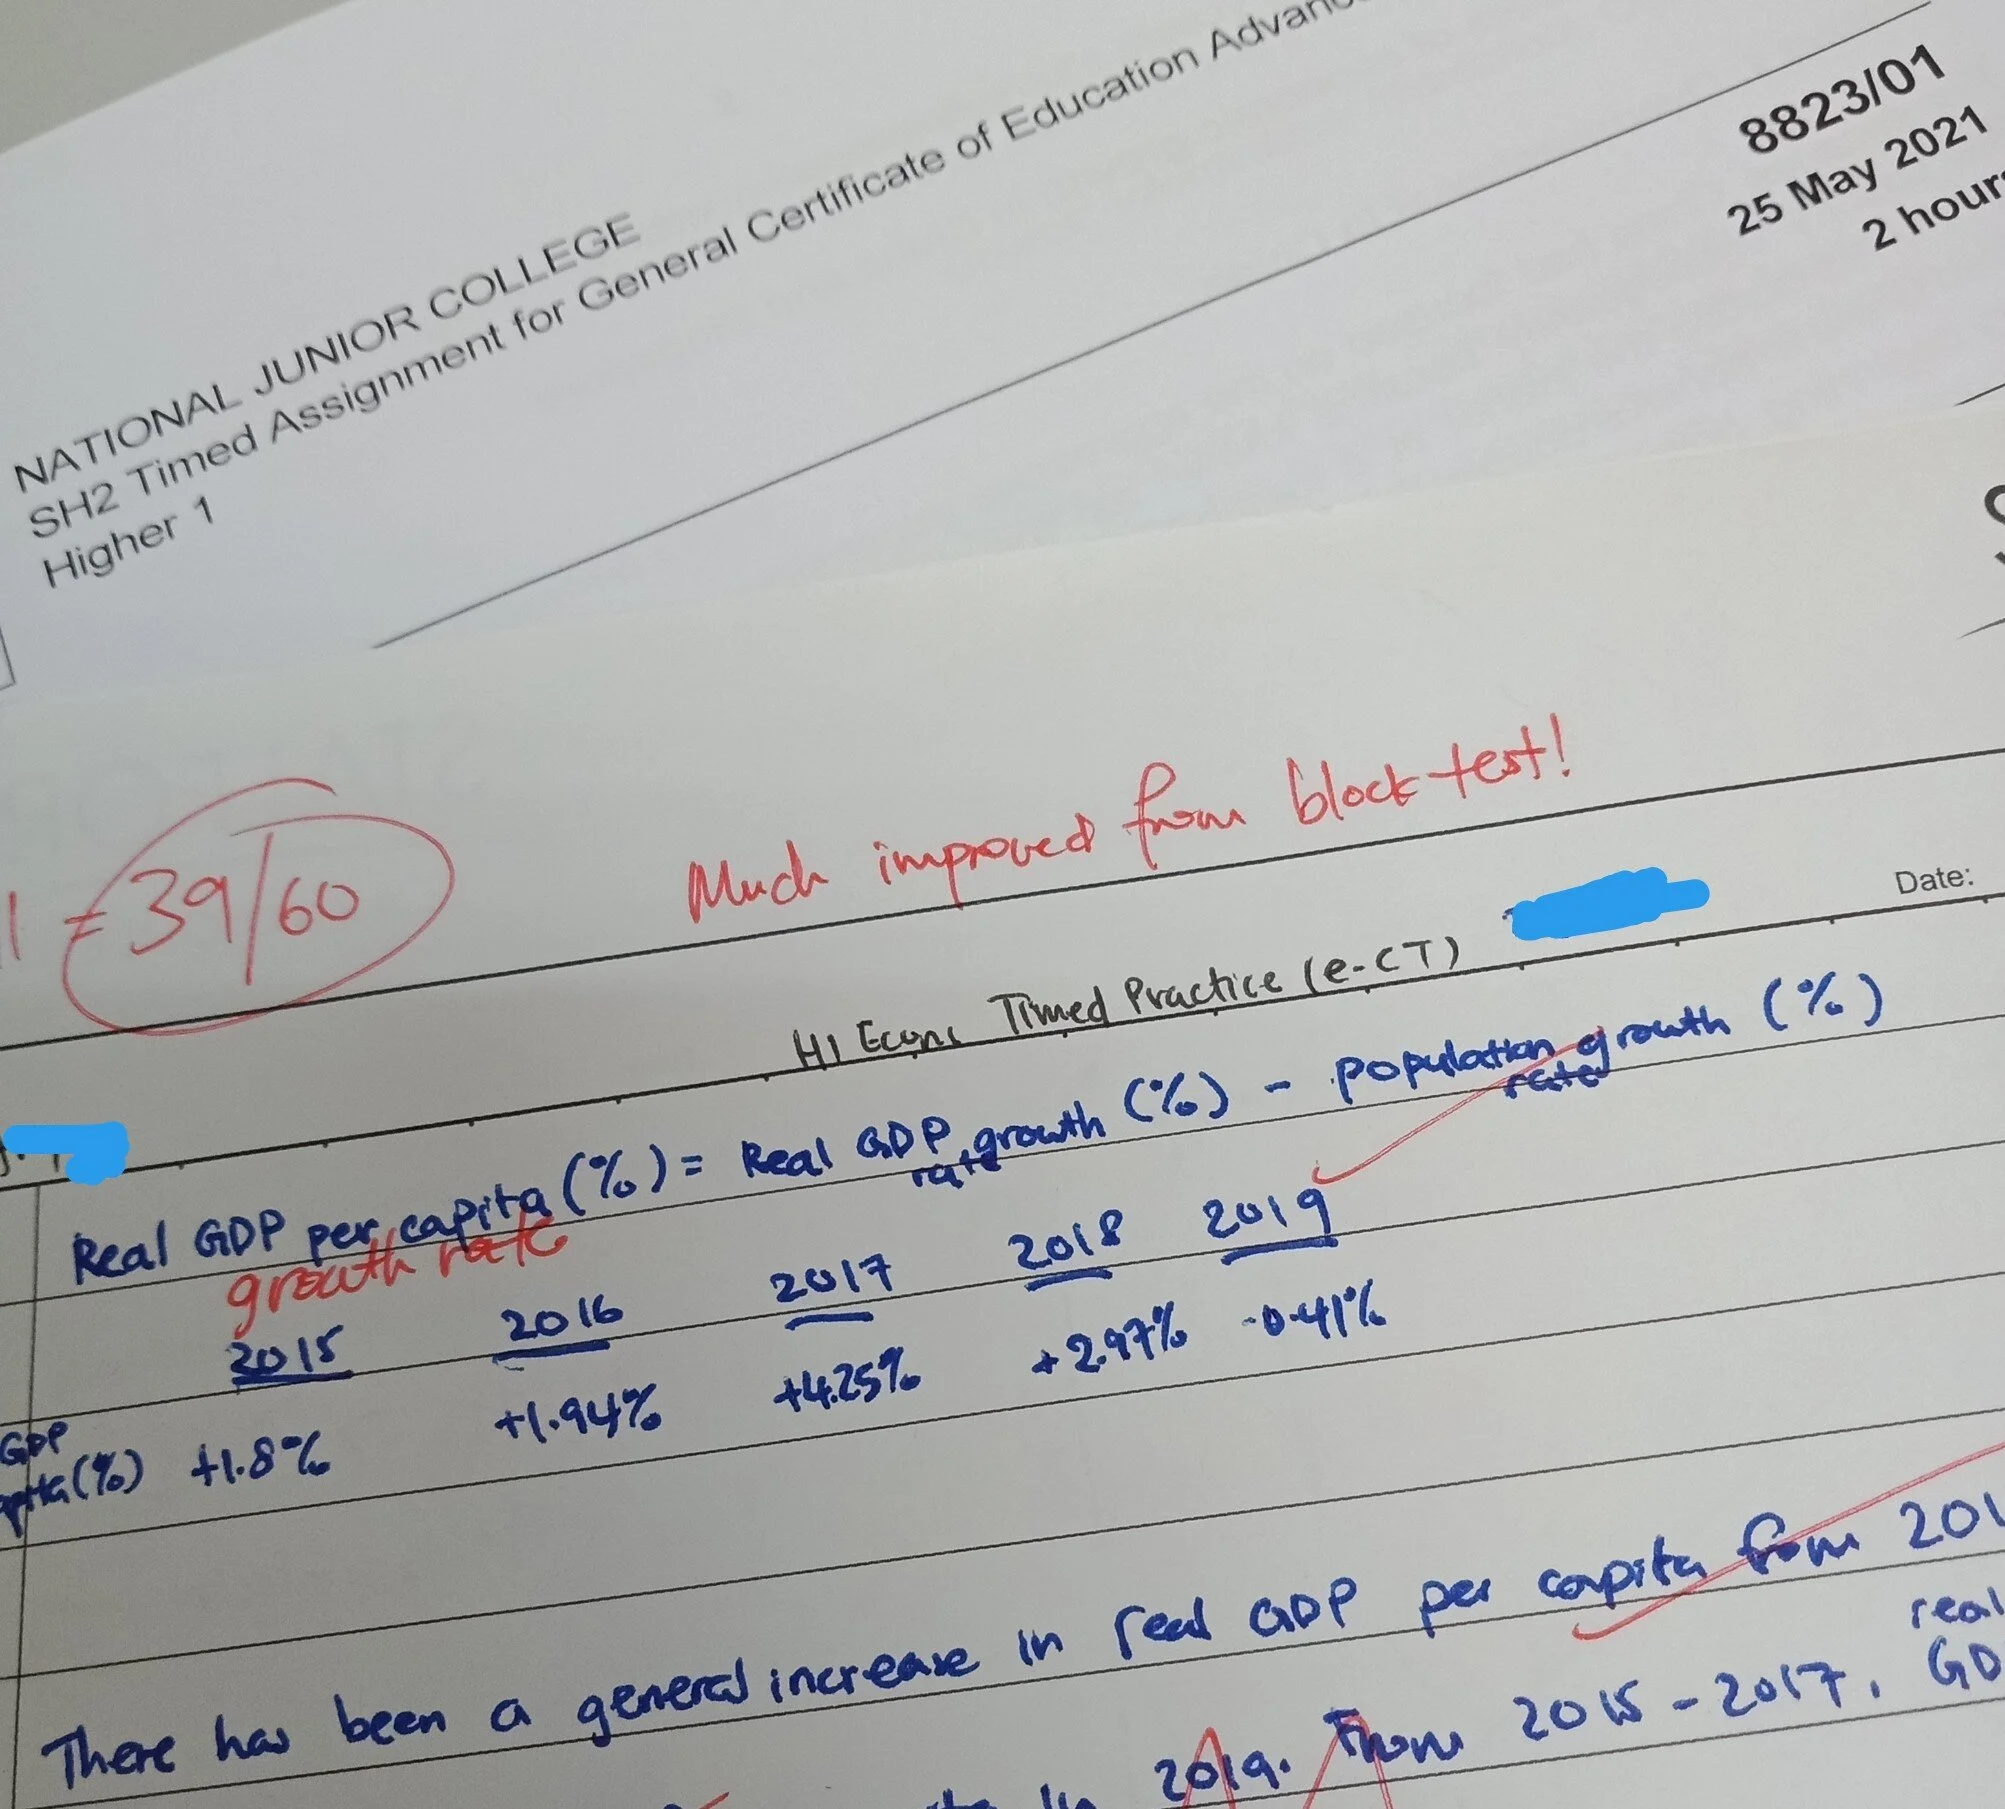 NATIONAL JUNIOR COLLEGE
SH2 Timed Assignment for General Certificate of Education
Higher 1
8823/01
25 May 2021
2 hours
= 39/60
Much improved from block test!
Date:
H1 Econs Timed Practice (e-CT)
Real GDP per capita (%) = Real GDP growth (%) - population growth (%)
rate
rate
growth rate
2015 2016 2017 2018 2019
GDP
(%) +1.8% +1.94% +4.25% +2.97% -0.41%
There has been a general increase in real GDP per capita from
real
in 2019. From 2015 - 2017,